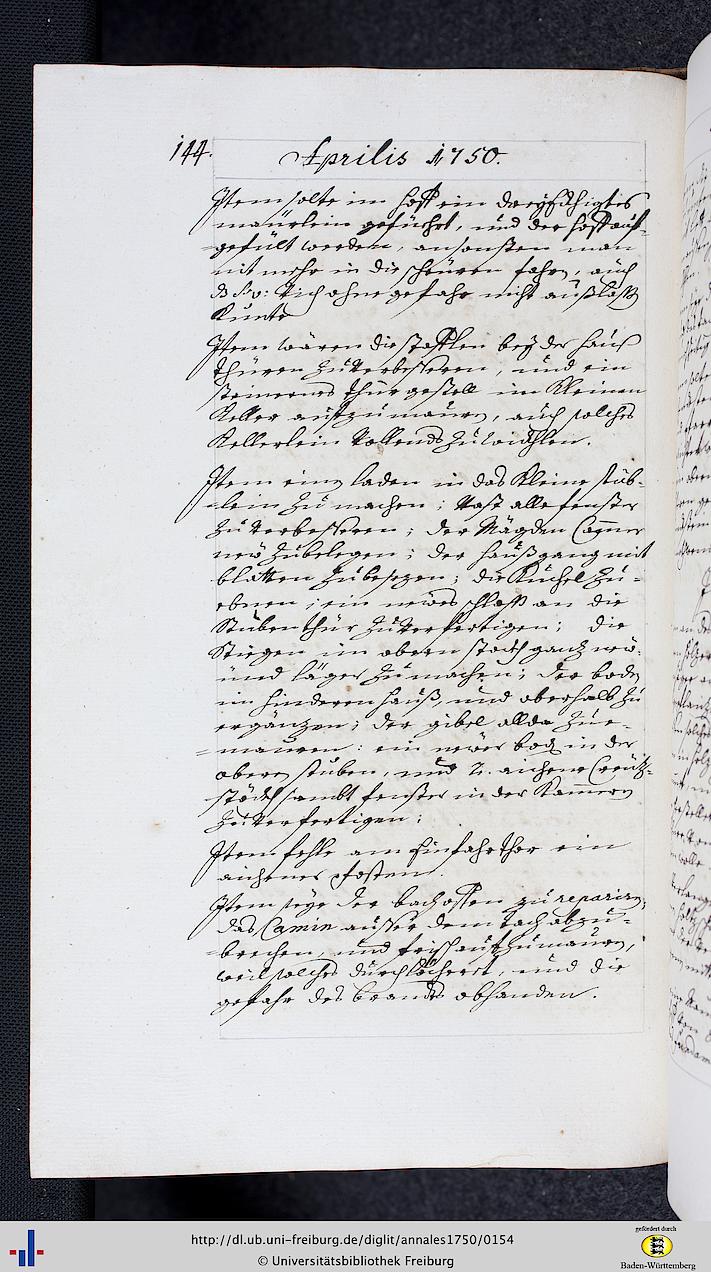 144.
Aprilis 1750.
Item solte im Hoff ein dreyschichtiges
maürlein geführt, und der Hoff auf-
=gefült werden, ansonsten man
nit mehr in die scheüren fahren, auch
Vich ohne gefahr nicht außlassen
kunte
Item wären die stafflen bey der Hauß
thüren zu verbesseren, und ein
steinernes thürgestell im kleinen
Keller aufzumauren, auch solches
Kellerlein vollends zu
Item einen laden in das kleine stüb-
=lein zu machen; fast alle fenster
zu verbesseren; der Mägden Cammer
new zu belegen; der Haußgang mit
blatten zu besezen; die Kuchel zu-
ebnen; ein newes schloß an die
Stuben thür zu verfertigen; die
Stiegen im obern stockh gantz new
und läger zu machen; der boden
im hinderen Hauß, und oberhalb zu
ergänzen; der gibel allda zue-
=mauren: ein newer in der
obern stuben, und 2. aichene Creütz-
stöckh sambt fenster in der Kammern
zu verfertigen:
Item fehle am Einfahrthor ein
aichener Pfosten.
Item seye der bachoffen zu reparirn,
das Camin ausser dem tach abzu-
=brechen, und frisch aufzumauren,
weil solches durchlöchert, und die
gefahr des brandts obhanden.
http://dl.ub.uni-freiburg.de/diglit/annales1750/0154
© Universitätsbibliothek Freiburg
gefördert durch
Baden-Württemberg